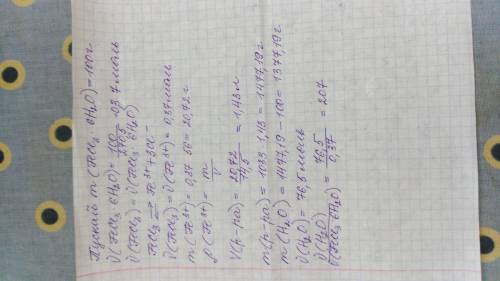 Пускай m(FeCl₃ · 6H₂O) = 100 г
ν(FeCl₃ · 6H₂O) = 100/270,5 = 0,37 моль
ν(FeCl₃) = ν(FeCl₃ · 6H₂O)
FeCl₃ ⇄ Fe³⁺ + 3Cl⁻
ν(FeCl₃) = ν(Fe³⁺) = 0,37 моль
m(Fe³⁺) = 0,37 · 56 = 20,72 г
ρ(Fe³⁺) = m/V
V(р-ра) = 20,72/14,5 = 1,43 л
m(р-ра) = 1033 · 1,43 = 1477,19 г
m(H₂O) = 1477,19 - 100 = 1377,19 г
ν(H₂O) = 76,5 моль
ν(H₂O)/ν(FeCl₃ · 6H₂O) = 76,5/0,37 = 207